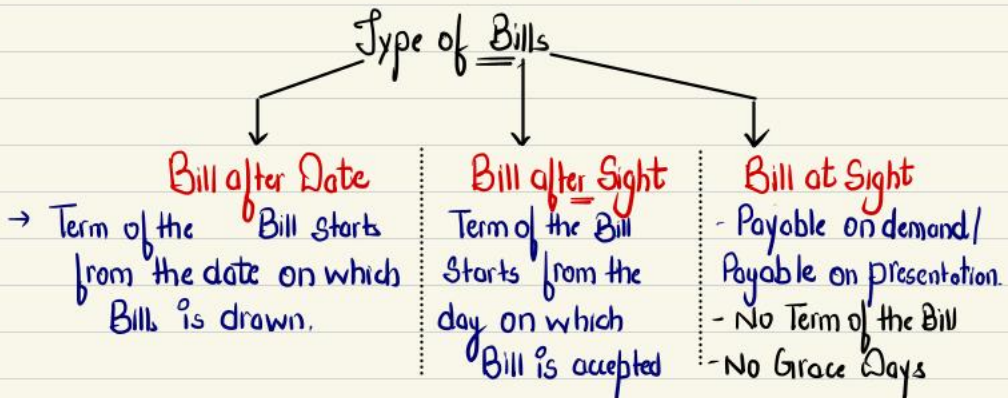 Type of Bills
Bill after Date
→ Term of the Bill starts
from the date on which
Bills is drawn.
Bill after Sight
Term of the Bill
Starts from the
day on which
Bill is accepted
Bill at Sight
- Payable on demand/
Payable on presentation.
- No Term of the Bill
- No Grace Days